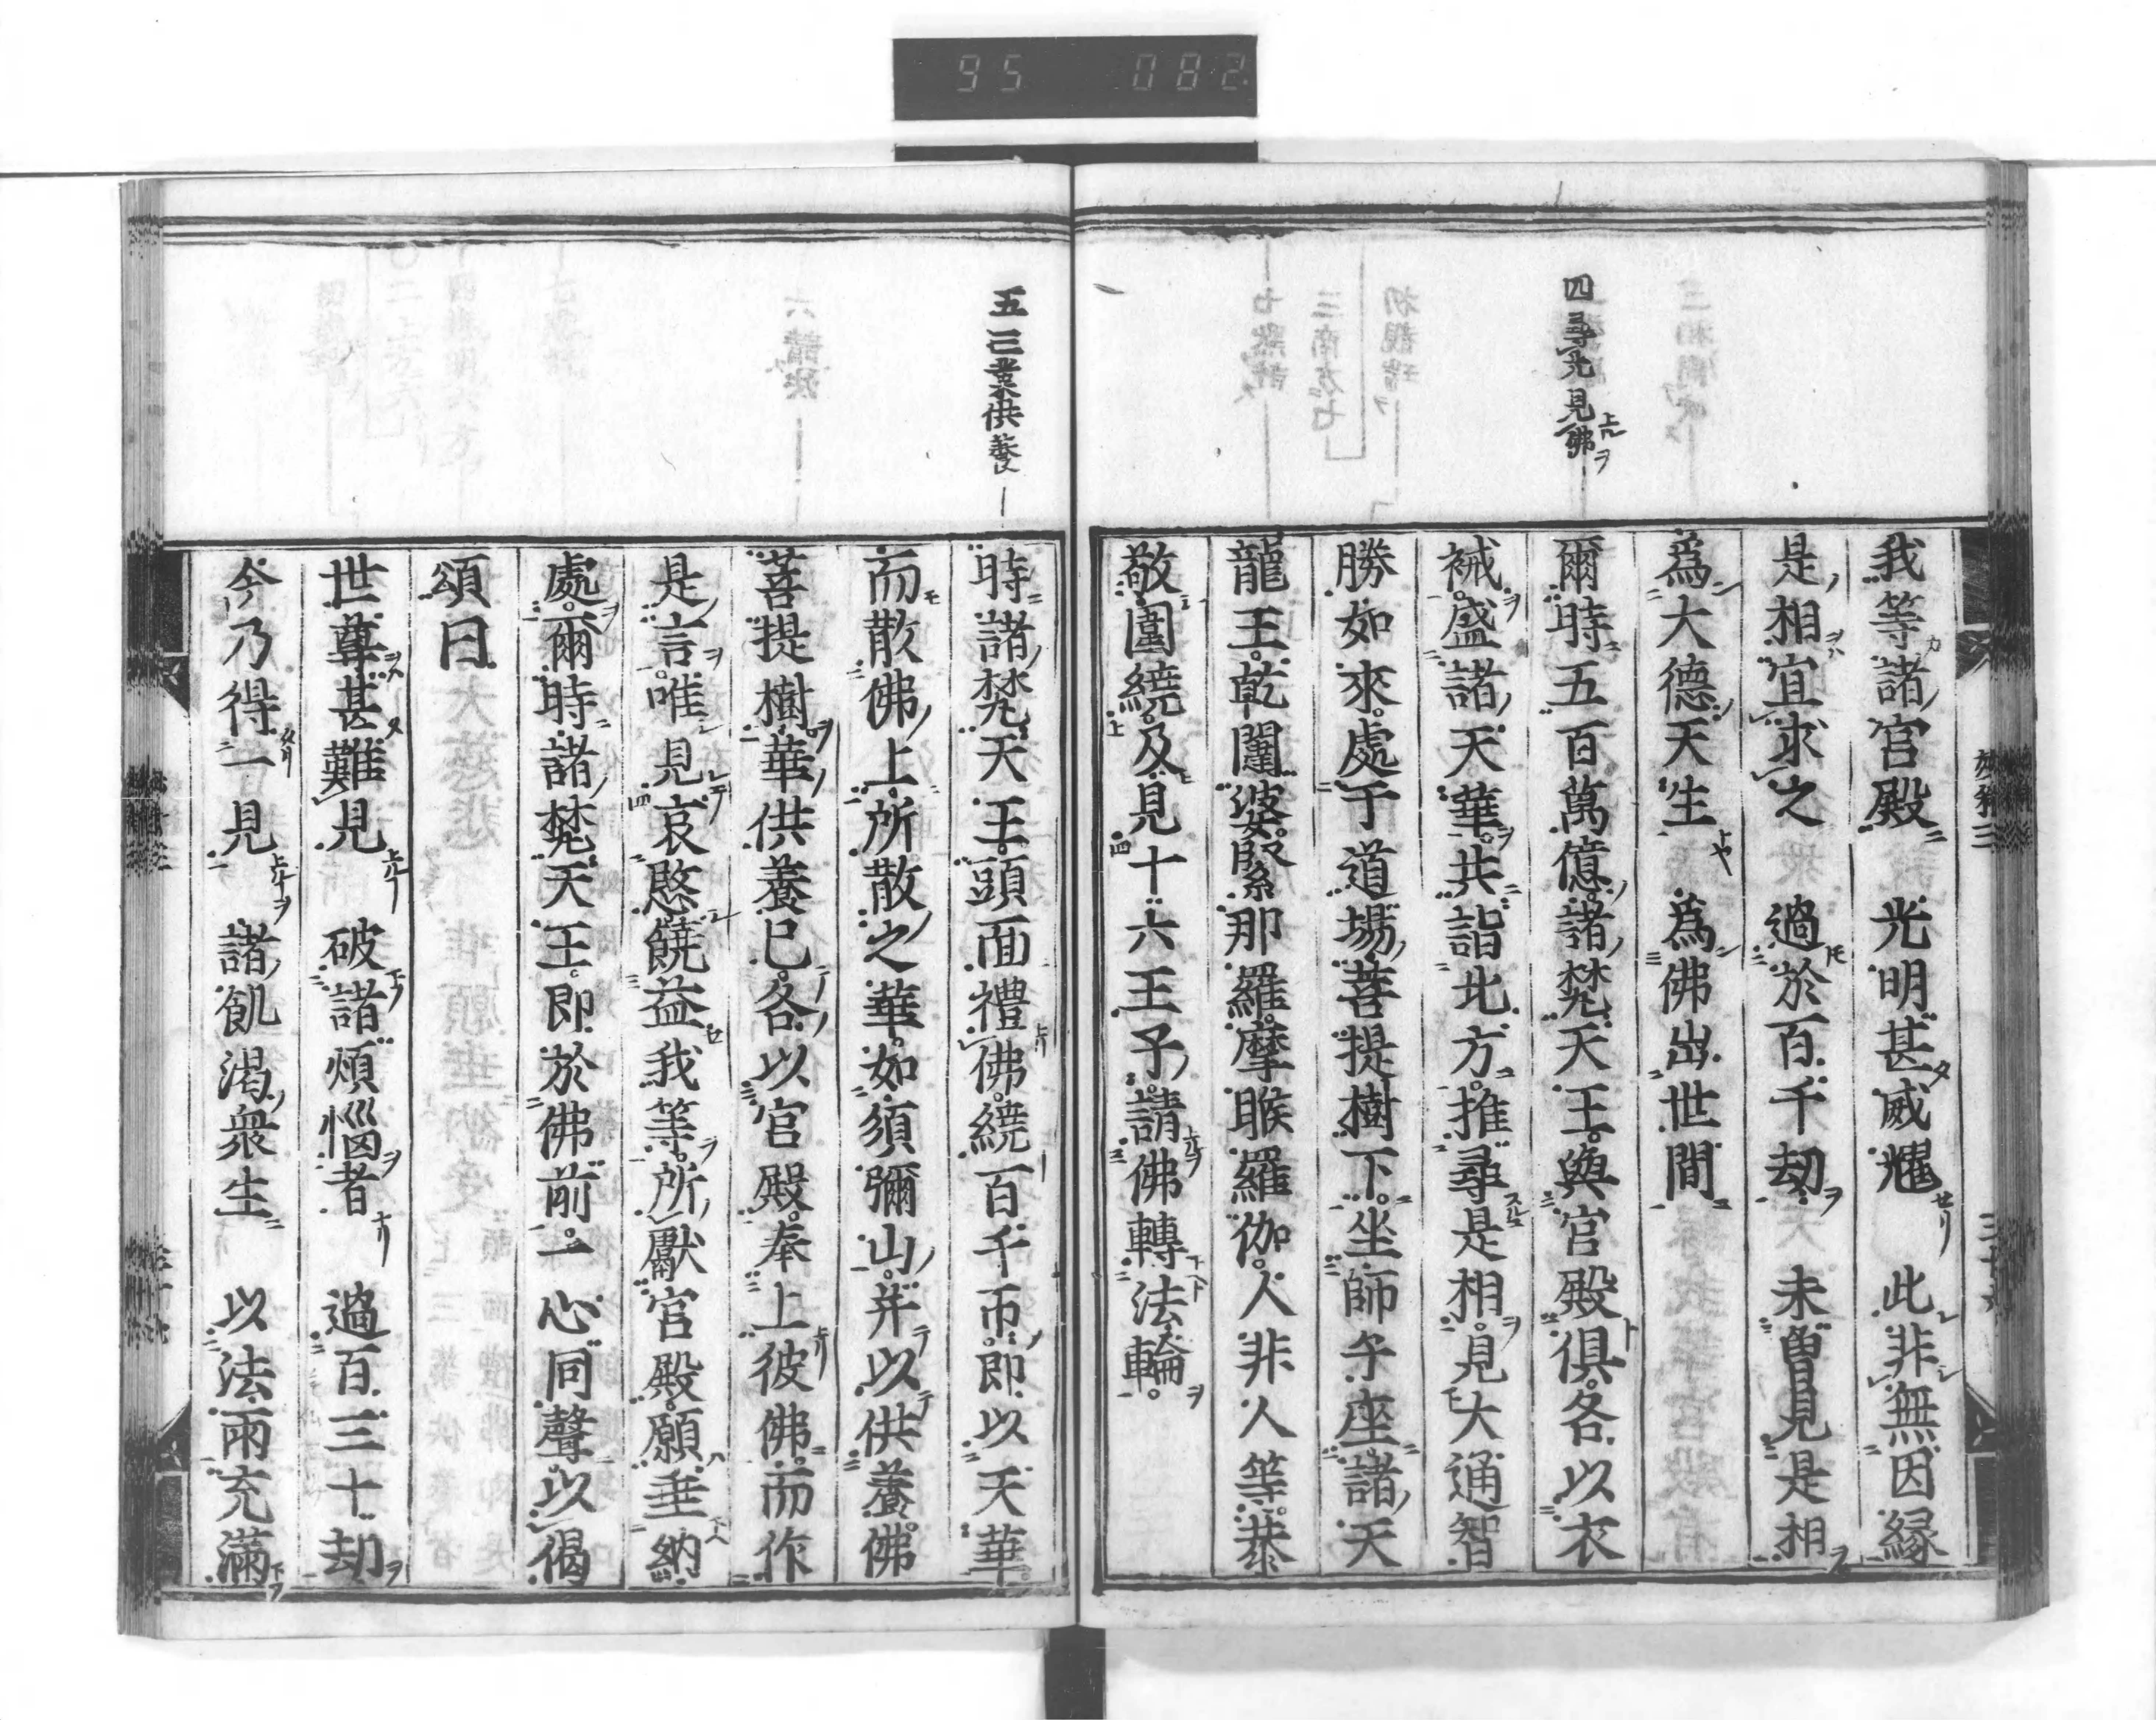 95 082
四尋光見佛
我等諸宮殿 光明甚威耀 此非無因緣
是相宜求之 過於百千劫 未曾見是相
爲大德天生 爲佛出世間
爾時五百萬億諸梵天王與宮殿俱各以衣
裓盛諸天華共詣北方推尋是相見大通智
勝如來處于道場菩提樹下坐師子座諸天
龍王乾闥婆緊那羅摩睺羅伽人非人等恭
敬圍繞及見十六王子請佛轉法輪
五三業供養
時諸梵天王頭面禮佛繞百千帀即以天華
而散佛上所散之華如須彌山并以供養佛
菩提樹華供養已各以宮殿奉上彼佛而作
是言唯見哀愍饒益我等所獻宮殿願垂納
處爾時諸梵天王即於佛前一心同聲以偈
頌曰
世尊甚難見 破諸煩惱者 過百三十劫
今乃得一見 諸飢渴衆生 以法雨充滿